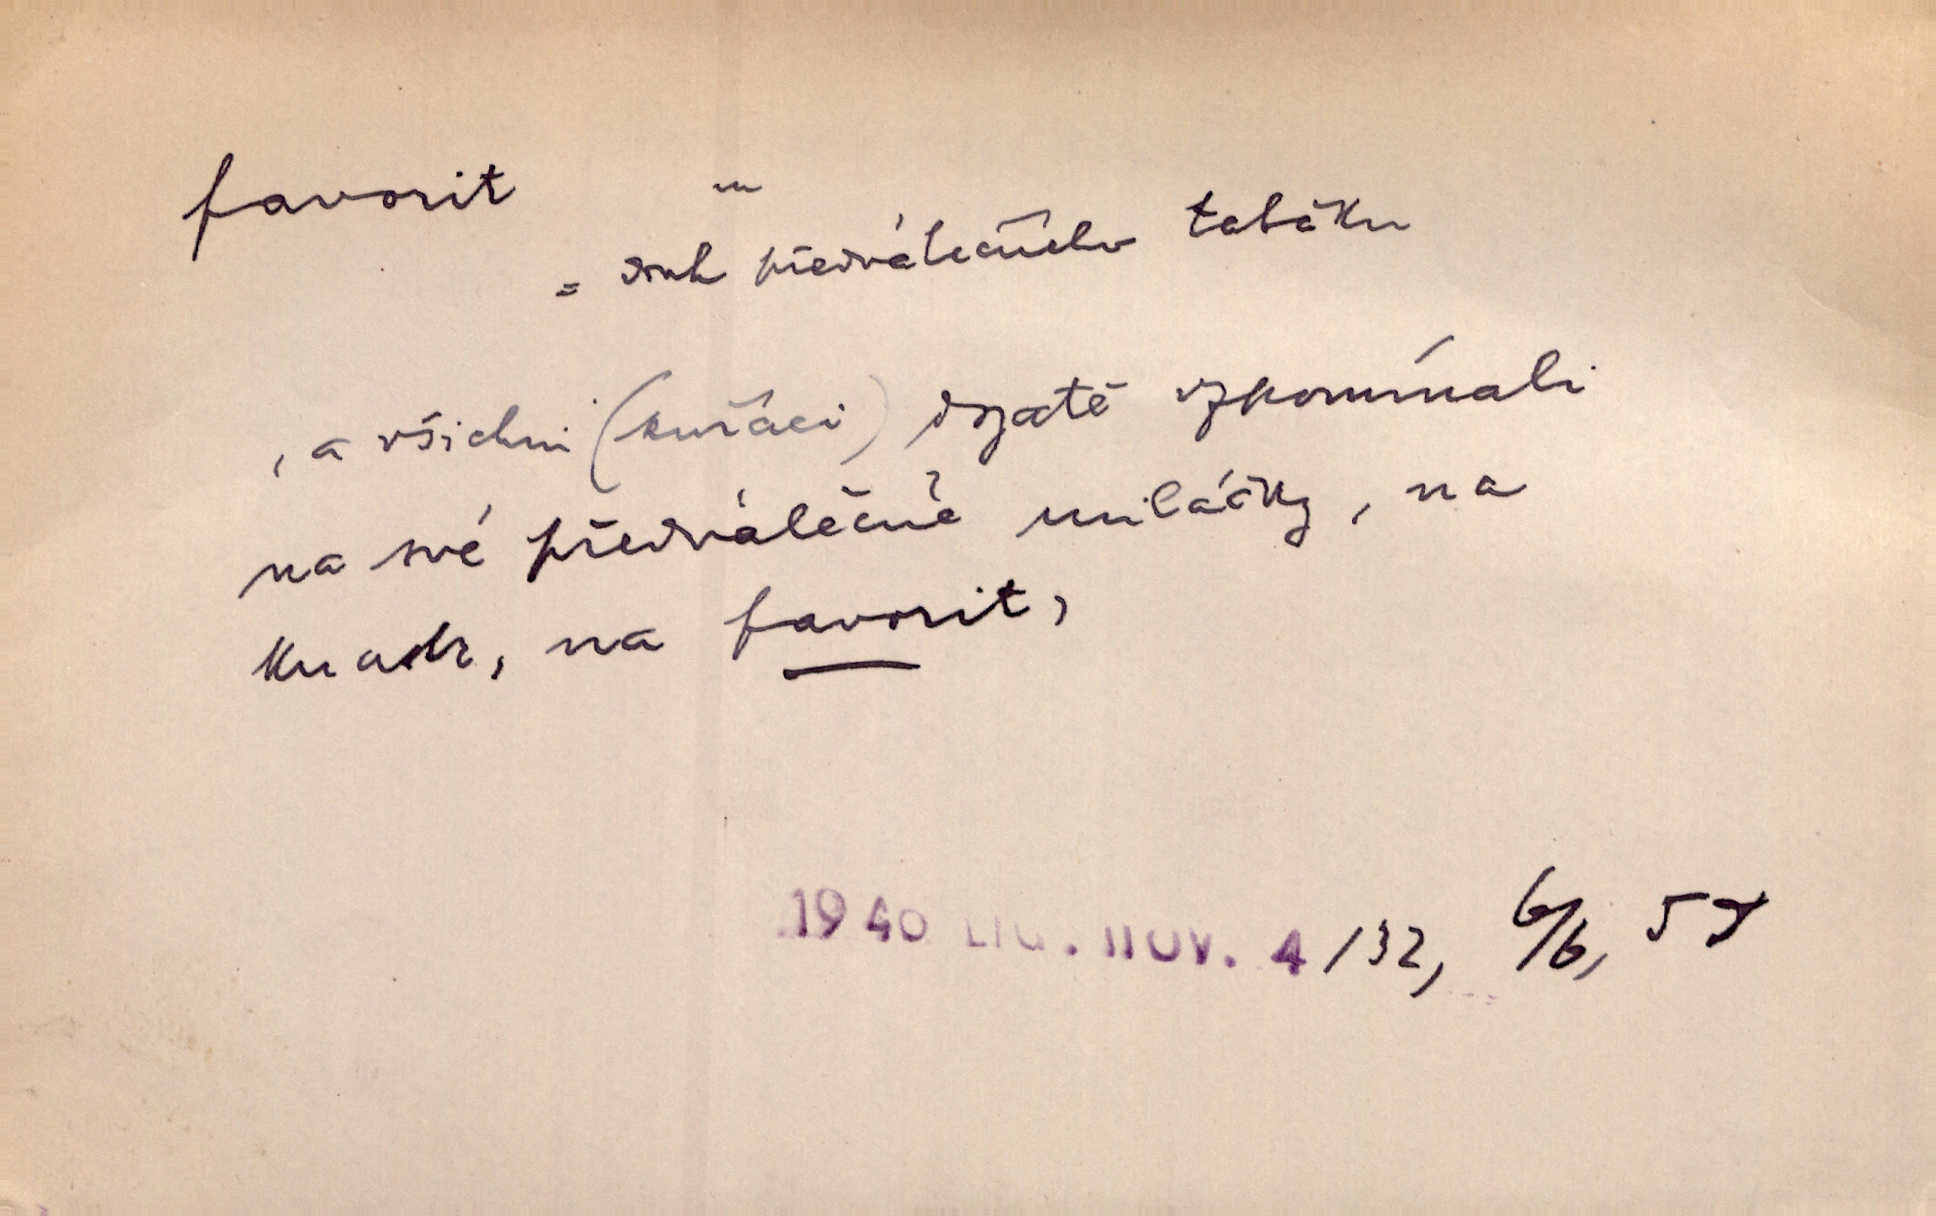 favorit m
= druh předválečného tabáku
, a všichni (kuřáci) dojatě vzpomínali
na své předválečné miláčky, na
knastr, na favorit,
1940 LID. NOV. 4/32, 6/6, 5